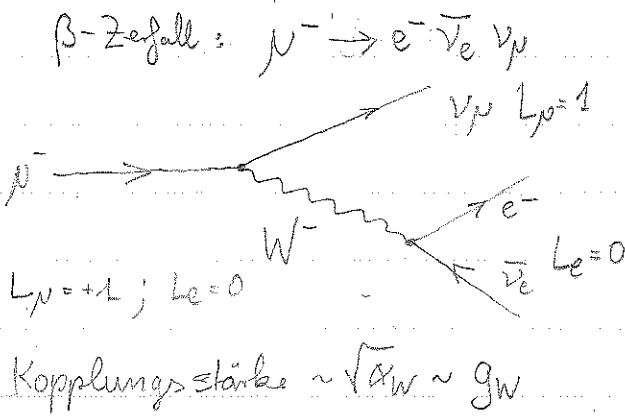 β-Zerfall: μ⁻ → e⁻ ν̄ₑ ν_μ
ν_μ L_μ=1
μ⁻
e⁻
W⁻
ν̄ₑ Lₑ=0
L_μ=+1; Lₑ=0
Kopplungsstärke ~ √α_W ~ g_W